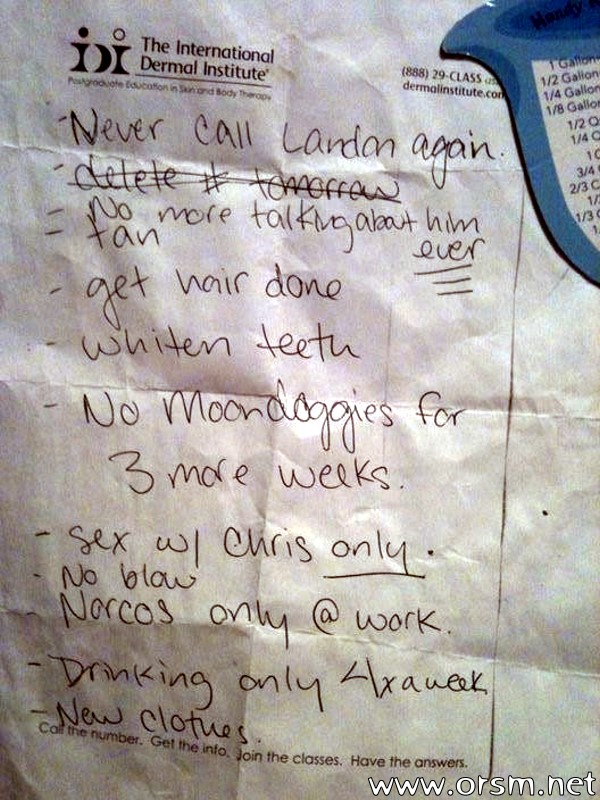 The International
Dermal Institute®
Postgraduate Education in Skin and Body Therapy
(888) 29-CLASS
dermalinstitute.com
Handy
1 Gallon
1/2 Gallon
1/4 Gallon
1/8 Gallon
1/2 Q
1/4
1
3/4
2/3 C
1/
1/3
- Never call Landon again.
- delete # tomorrow
- No more talking about him
ever
- tan
- get hair done
- whiten teeth
- No Moondoggies for
3 more weeks.
- sex w/ Chris only.
- No blow
Narcos only @ work.
- Drinking only 4x a week
- New clothes.
Call the number. Get the info. Join the classes. Have the answers.
www.orsm.net